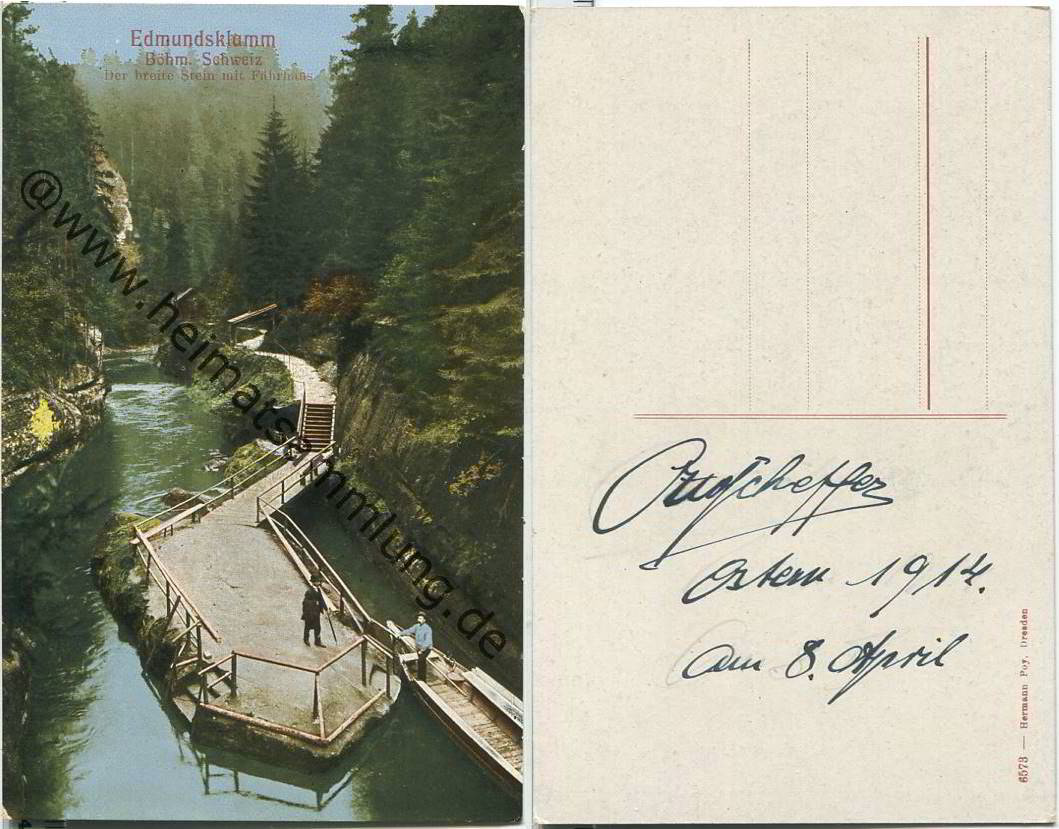 Edmundsklamm
Böhm. Schweiz
Der breite Stein mit Fährhaus
@www.heimatsammlung.de
Ostern 1914.
am 8. April
6573 — Hermann Poy, Dresden